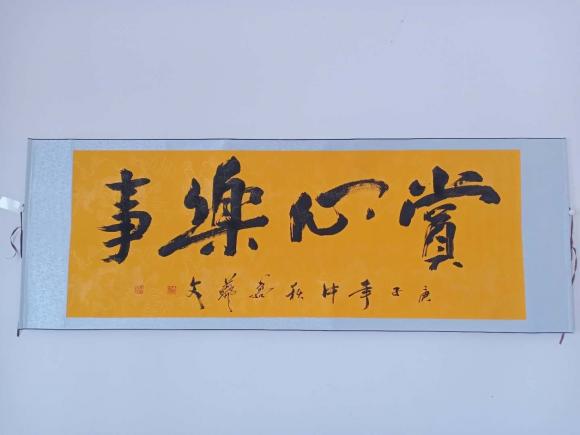 賞心樂事
庚子年中秋書